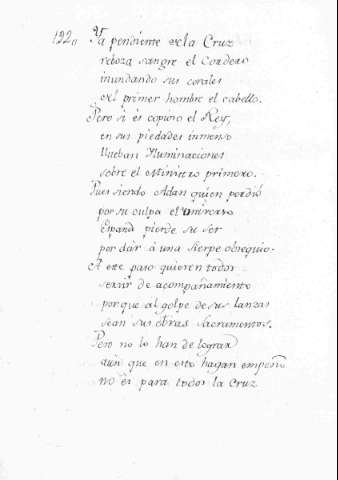 122. Ya pendiente de la Cruz
reboza sangre el Cordero
inundando sus corales
del primer hombre el cabello.
Pero si es copioso el Rey,
en sus piedades inmenso
llueban Iluminaciones
sobre el Ministro primero.
Pues siendo Adan quien perdió
por su culpa el universo
España pierde su ser
por dar á una sierpe obsequio.
A este paso quieren todos
servir de acompañamiento
porque al golpe de sus lanzas
sean sus obras Sacramentos.
Pero no lo han de lograr
aun que en esto hagan empeño
no es para todos la Cruz